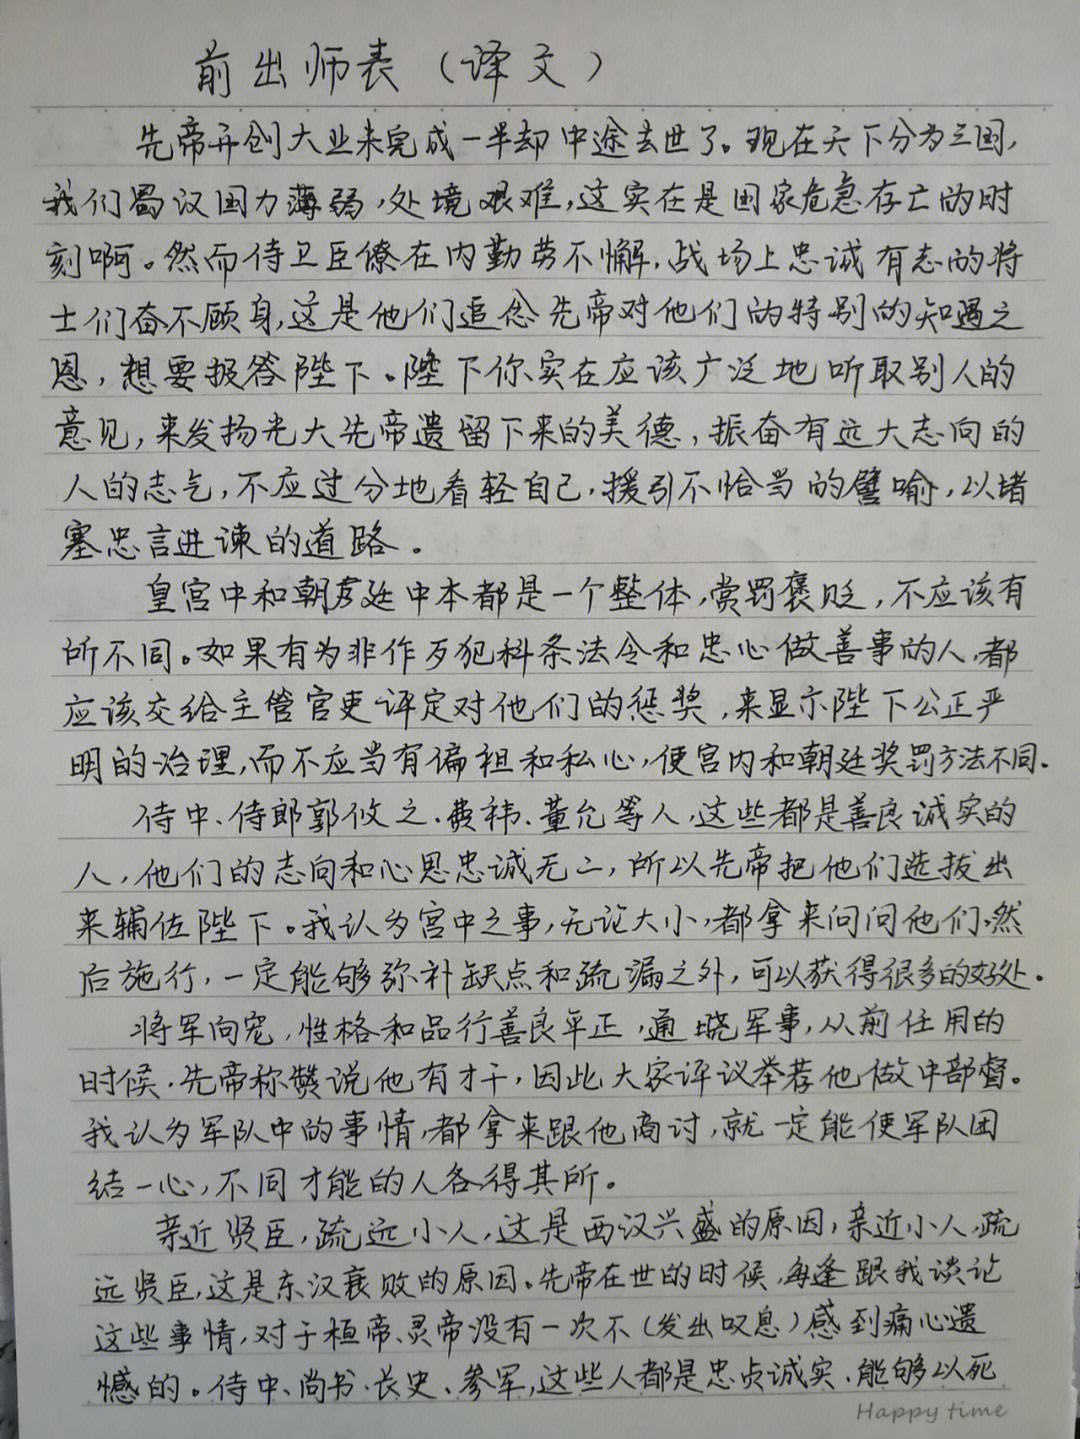 前出师表（译文）
先帝开创大业未完成一半却中途去世了。现在天下分为三国，
我们蜀汉国力薄弱，处境艰难，这实在是国家危急存亡的时
刻啊。然而侍卫臣僚在内勤劳不懈，战场上忠诚有志的将
士们奋不顾身，这是他们追念先帝对他们的特别的知遇之
恩，想要报答陛下。陛下你实在应该广泛地听取别人的
意见，来发扬光大先帝遗留下来的美德，振奋有远大志向的
人的志气，不应过分地看轻自己，援引不恰当的譬喻，以堵
塞忠言进谏的道路。
皇宫中和朝廷中本都是一个整体，赏罚褒贬，不应该有
所不同。如果有为非作歹犯科条法令和忠心做善事的人，都
应该交给主管官吏评定对他们的惩奖，来显示陛下公正严
明的治理，而不应当有偏袒和私心，使宫内和朝廷奖罚方法不同.
侍中、侍郎郭攸之、费祎、董允等人，这些都是善良诚实的
人，他们的志向和心思忠诚无二，所以先帝把他们选拔出
来辅佐陛下。我认为宫中之事，无论大小，都拿来问问他们，然
后施行，一定能够弥补缺点和疏漏之外，可以获得很多的好处.
将军向宠，性格和品行善良平正，通晓军事，从前任用的
时候，先帝称赞说他有才干，因此大家评议举荐他做中部督。
我认为军队中的事情，都拿来跟他商讨，就一定能使军队团
结一心，不同才能的人各得其所。
亲近贤臣，疏远小人，这是西汉兴盛的原因，亲近小人，疏
远贤臣，这是东汉衰败的原因。先帝在世的时候，每逢跟我谈论
这些事情，对于桓帝、灵帝没有一次不（发出叹息）感到痛心遗
憾的。侍中、尚书、长史、参军，这些人都是忠贞诚实、能够以死
Happy time